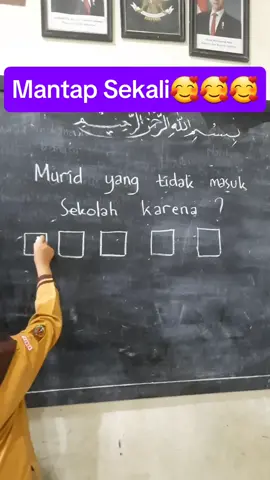 Mantap Sekali🥰🥰🥰
بِسْمِ اللهِ الرَّحْمٰنِ الرَّحِيْمِ
Murid yang tidak masuk
Sekolah karena ?